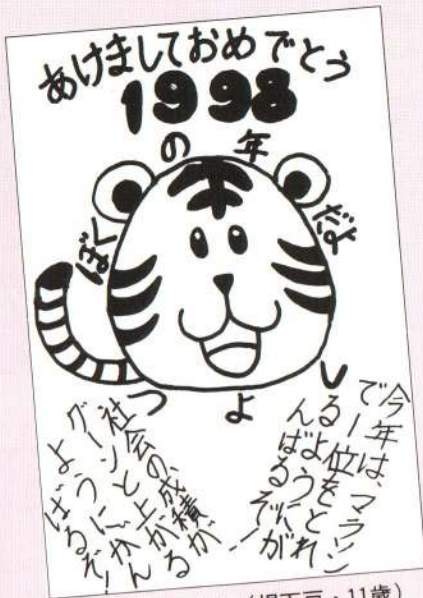 あけましておめでとう
1998
の年
ぼくはつよしだよ
今年は、マラソン
で一位をとれ
るようにが
んばるぞ!
社会の、成積が
グーンと上がる
ようにがん
ばるぞ!
11歳)